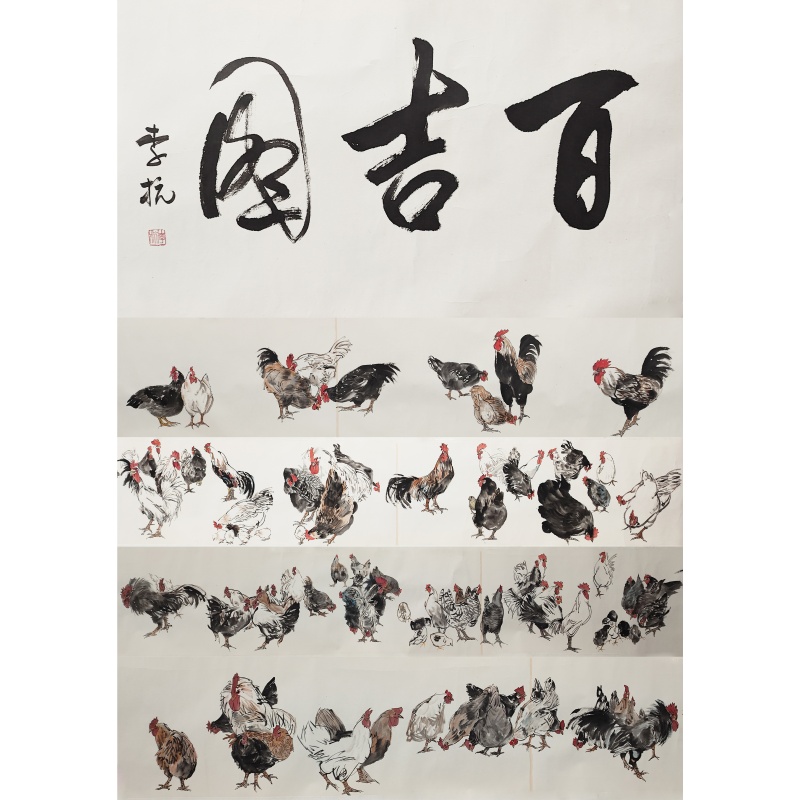 百吉图
李杭